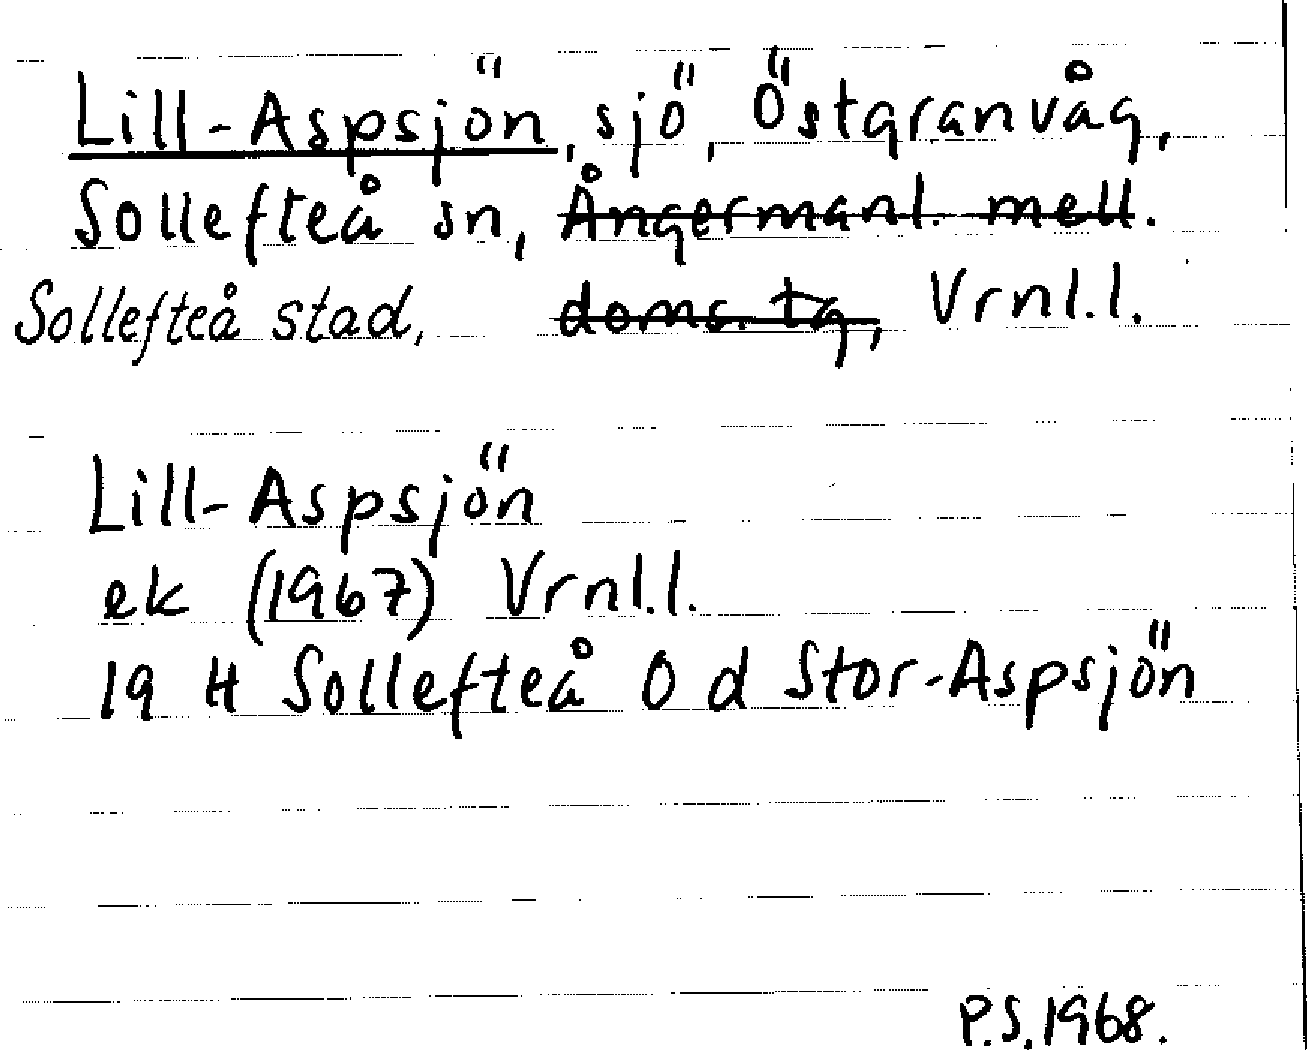 Lill-Aspsjön, sjö, Östgranvåg,
Sollefteå sn, Ångermanl. mell.
Sollefteå stad, doms. tg, Vrnl.l.
Lill-Aspsjön
ek (1967) Vrnl.l.
19 H Sollefteå O d Stor-Aspsjön
P.S. 1968.